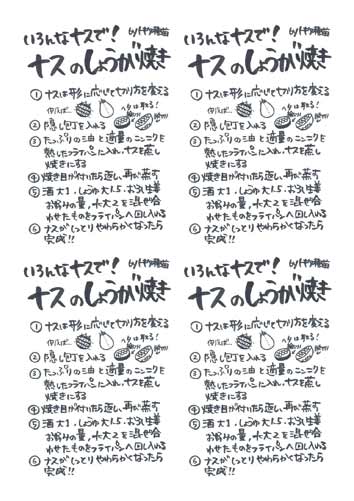 いろんなナスで! by
ナスのしょうが焼き
① ナスは形に応じて切り方を変える
例えば… ヘタは取る!
② 隠し包丁を入れる
③ たっぷりの油と適量のニンニクを
熱したフライパンに入れ、ナスを蒸し
焼きにする
④ 焼き目が付いたら返し、再び蒸す
⑤ 酒大1、しょうゆ大1.5、おろし生姜
お好みの量、水大2を混ぜ合
わせたものをフライパンへ回し入れる
⑥ ナスがしっとりやわらかくなったら
完成!!
いろんなナスで! by
ナスのしょうが焼き
① ナスは形に応じて切り方を変える
例えば… ヘタは取る!
② 隠し包丁を入れる
③ たっぷりの油と適量のニンニクを
熱したフライパンに入れ、ナスを蒸し
焼きにする
④ 焼き目が付いたら返し、再び蒸す
⑤ 酒大1、しょうゆ大1.5、おろし生姜
お好みの量、水大2を混ぜ合
わせたものをフライパンへ回し入れる
⑥ ナスがしっとりやわらかくなったら
完成!!
いろんなナスで! by
ナスのしょうが焼き
① ナスは形に応じて切り方を変える
例えば… ヘタは取る!
② 隠し包丁を入れる
③ たっぷりの油と適量のニンニクを
熱したフライパンに入れ、ナスを蒸し
焼きにする
④ 焼き目が付いたら返し、再び蒸す
⑤ 酒大1、しょうゆ大1.5、おろし生姜
お好みの量、水大2を混ぜ合
わせたものをフライパンへ回し入れる
⑥ ナスがしっとりやわらかくなったら
完成!!
いろんなナスで! by
ナスのしょうが焼き
① ナスは形に応じて切り方を変える
例えば… ヘタは取る!
② 隠し包丁を入れる
③ たっぷりの油と適量のニンニクを
熱したフライパンに入れ、ナスを蒸し
焼きにする
④ 焼き目が付いたら返し、再び蒸す
⑤ 酒大1、しょうゆ大1.5、おろし生姜
お好みの量、水大2を混ぜ合
わせたものをフライパンへ回し入れる
⑥ ナスがしっとりやわらかくなったら
完成!!